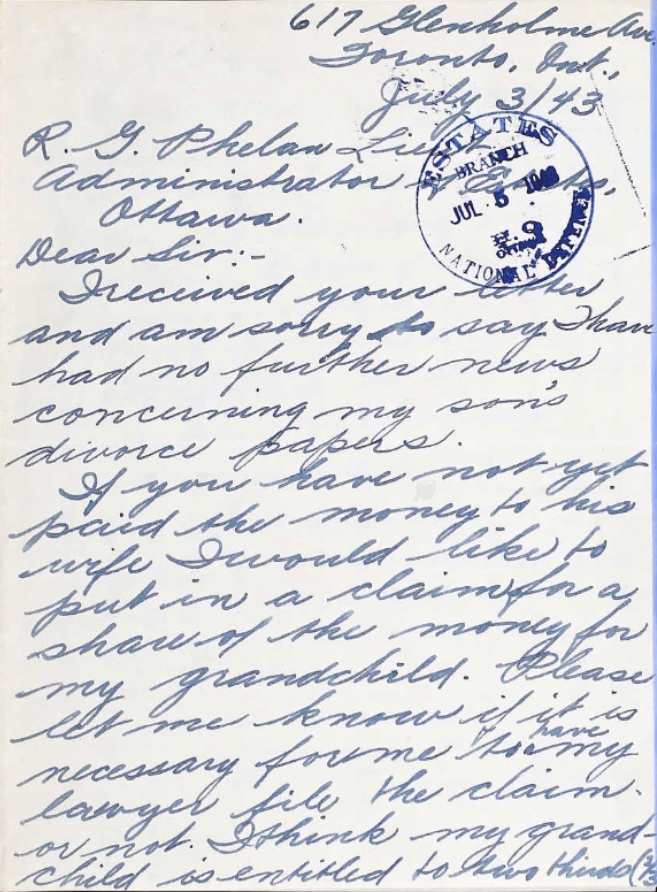 617 Glenholme Ave.
Toronto, Ont.,
July 3/43
R. G. Phelan Lieut.
Administrator of Estates,
Ottawa.
ESTATES
BRANCH
JUL 5 1943
OTTAWA
NATIONAL DEFENCE
Dear Sir:-
I received your letter
and am sorry to say I have
had no further news
concerning my son's
divorce papers.
If you have not yet
paid the money to his
wife I would like to
put in a claim for a
share of the money for
my grandchild. Please
let me know if it is
necessary for me to have my
lawyer file the claim
or not. I think my grand-
child is entitled to two thirds (2/3